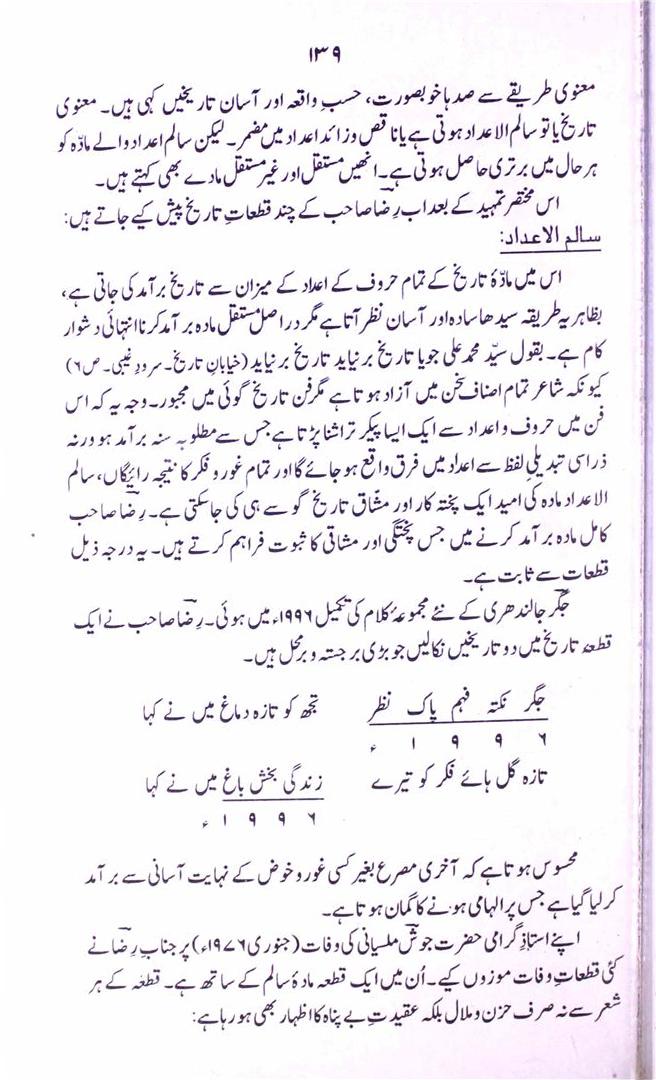 ۱۳۹
معنوی طریقے سے صدہا خوبصورت، حسبِ واقعہ اور آسان تاریخیں کہی ہیں۔ معنوی
تاریخ یا تو سالم الاعداد ہوتی ہے یا ناقص و زائد اعداد میں مضمر۔ لیکن سالم اعداد والے مادّہ کو
ہر حال میں برتری حاصل ہوتی ہے۔ انھیں مستقل اور غیر مستقل مادے بھی کہتے ہیں۔
اس مختصر تمہید کے بعد اب رضاؔ صاحب کے چند قطعاتِ تاریخ پیش کیے جاتے ہیں:
سالم الاعداد:
اس میں مادّۂ تاریخ کے تمام حروف کے اعداد کے میزان سے تاریخ برآمد کی جاتی ہے،
بظاہر یہ طریقہ سیدھا سادہ اور آسان نظر آتا ہے مگر دراصل مستقل مادہ برآمد کرنا انتہائی دشوار
کام ہے۔ بقول سیّد محمد علی جویا تاریخ بر نیاید تاریخ بر نیاید (خیابانِ تاریخ۔ سرودِ غیبی۔ ص۶)
کیونکہ شاعر تمام اصناف سخن میں آزاد ہوتا ہے مگر فن تاریخ گوئی میں مجبور۔ وجہ یہ کہ اس
فن میں حروف و اعداد سے ایک ایسا پیکر تراشنا پڑتا ہے جس سے مطلوبہ سنہ برآمد ہو ورنہ
ذرا سی تبدیلیِ لفظ سے اعداد میں فرق واقع ہو جائے گا اور تمام غور و فکر کا نتیجہ رائیگاں، سالم
الاعداد مادہ کی امید ایک پختہ کار اور مشّاق تاریخ گو سے ہی کی جاسکتی ہے۔ رضاؔ صاحب
کامل مادہ برآمد کرنے میں جس پختگی اور مشاقی کا ثبوت فراہم کرتے ہیں۔ یہ درجہ ذیل
قطعات سے ثابت ہے۔
جگرؔ جالندھری کے نئے مجموعۂ کلام کی تکمیل ۱۹۹۶ء میں ہوئی۔ رضاؔ صاحب نے ایک
قطعۂ تاریخ میں دو تاریخیں نکالیں جو بڑی برجستہ و برمحل ہیں۔
جگر نکتہ فہم پاک نظر    تجھ کو تازہ دماغ میں نے کہا
۱ ۹ ۹ ۶ ء
تازہ گل ہائے فکر کو تیرے    زندگی بخش باغ میں نے کہا
۱ ۹ ۹ ۶ ء
محسوس ہوتا ہے کہ آخری مصرع بغیر کسی غور و خوض کے نہایت آسانی سے برآمد
کر لیا گیا ہے جس پر الہامی ہونے کا گمان ہوتا ہے۔
اپنے استاذِ گرامی حضرت جوشؔ ملسیانی کی وفات (جنوری ۱۹۷۶ء) پر جناب رضاؔ نے
کئی قطعاتِ وفات موزوں کیے۔ اُن میں ایک قطعہ مادۂ سالم کے ساتھ ہے۔ قطعہ کے ہر
شعر سے نہ صرف حزن و ملال بلکہ عقیدتِ بے پناہ کا اظہار بھی ہو رہا ہے: